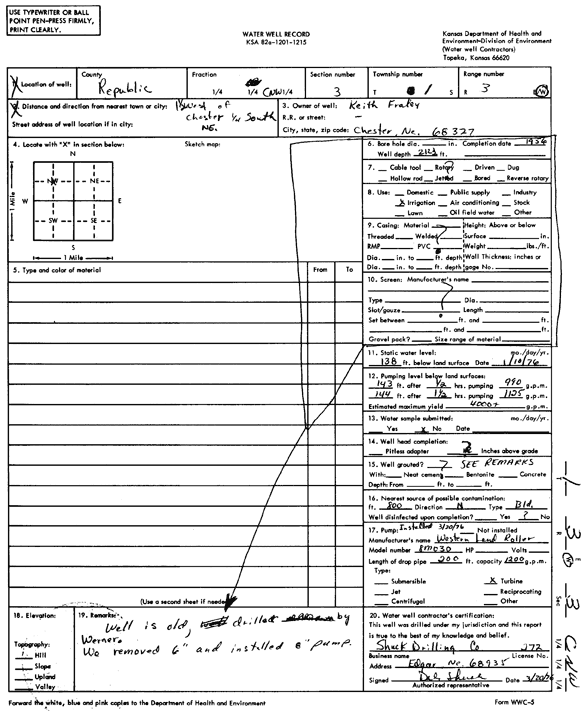 USE TYPEWRITER OR BALL
POINT PEN-PRESS FIRMLY,
PRINT CLEARLY.
WATER WELL RECORD
KSA 82a-1201-1215
Kansas Department of Health and
Environment-Division of Environment
(Water well Contractors)
Topeka, Kansas 66620
1. Location of well: County Republic Fraction 1/4 1/4 CNW1/4 Section number 3 Township number T 1 S Range number R 3 E/W
2. Distance and direction from nearest town or city: 1 1/2 West of Chester 1/4 South NE.
Street address of well location if in city:
3. Owner of well: Keith Fraley
R.R. or street: –
City, state, zip code: Chester, Ne. 68327
4. Locate with "X" in section below:
Sketch map:
N
NW NE
W E
SW SE
S
1 Mile
1 Mile
5. Type and color of material From To
(Use a second sheet if needed)
6. Bore hole dia. in. Completion date 1956
Well depth 212 1/2 ft.
7. Cable tool Rotary ? Driven Dug
Hollow rod Jetted Bored Reverse rotary
8. Use: Domestic Public supply Industry
X Irrigation Air conditioning Stock
Lawn Oil field water Other
9. Casing: Material ? Height: Above or below
Threaded Welded Surface in.
RMP PVC Weight lbs./ft.
Dia. in. to ft. depth Wall Thickness: inches or
Dia. in. to ft. depth gage No.
10. Screen: Manufacturer's name
?
Type Dia.
Slot/gauze Length
Set between ft. and ft.
ft. and ft.
Gravel pack? Size range of material
11. Static water level: mo./day/yr.
138 ft. below land surface Date 1/10/76
12. Pumping level below land surfaces:
143 ft. after 1/2 hrs. pumping 990 g.p.m.
144 ft. after 1 1/2 hrs. pumping 1125 g.p.m.
Estimated maximum yield 4000+ g.p.m.
13. Water sample submitted: mo./day/yr.
Yes X No Date
14. Well head completion: ?
Pitless adapter Inches above grade
15. Well grouted? ? SEE REMARKS
With: Neat cement Bentonite Concrete
Depth: From ft. to ft.
16. Nearest source of possible contamination:
ft. 800 Direction N Type Bld.
Well disinfected upon completion? Yes ? No
17. Pump: Installed 3/20/76 Not installed
Manufacturer's name Western Land Roller
Model number 8M030 HP Volts
Length of drop pipe 200 ft. capacity 1200 g.p.m.
Type:
Submersible X Turbine
Jet Reciprocating
Centrifugal Other
18. Elevation:
Topography:
Hill
Slope
Upland
Valley
19. Remarks:
Well is old, drilled by
Werners.
We removed 6" and installed 8" pump.
20. Water well contractor's certification:
This well was drilled under my jurisdiction and this report
is true to the best of my knowledge and belief.
Shuck Drilling Co 272
Business name License No.
Address Edgar Ne. 68935
Signed Shuck Date 3/20/76
Authorized representative
T 1 R 3 E W Sec 3 1/4 1/4 1/4 CNW
Forward the white, blue and pink copies to the Department of Health and Environment
Form WWC-5